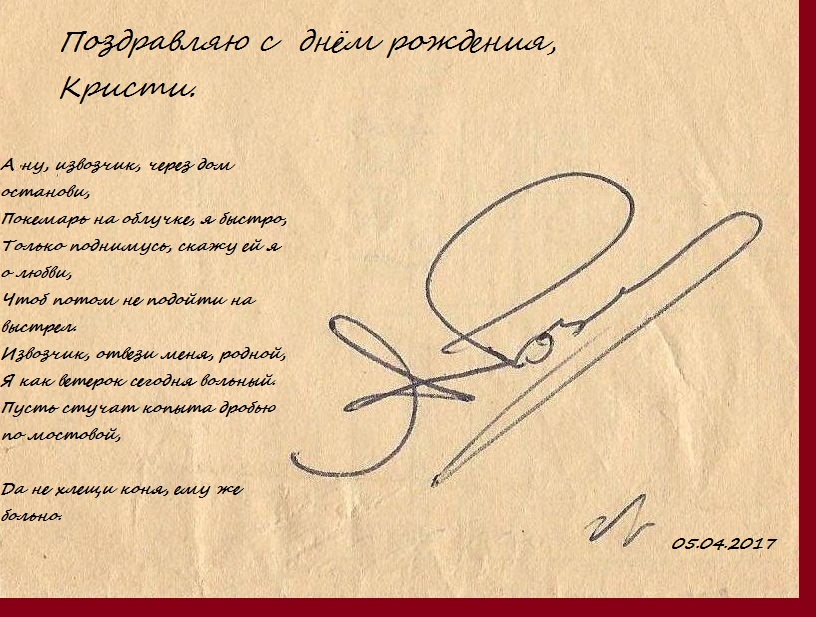 Поздравляю с днём рождения,
Кристи.
А ну, извозчик, через дом
останови,
Покемарь на облучке, я быстро,
Только поднимусь, скажу ей я
о любви,
Чтоб потом не подойти на
выстрел.
Извозчик, отвези меня, родной,
Я как ветерок сегодня вольный.
Пусть стучат копыта дробью
по мостовой,
Да не хлещи коня, ему же
больно.
05.04.2017